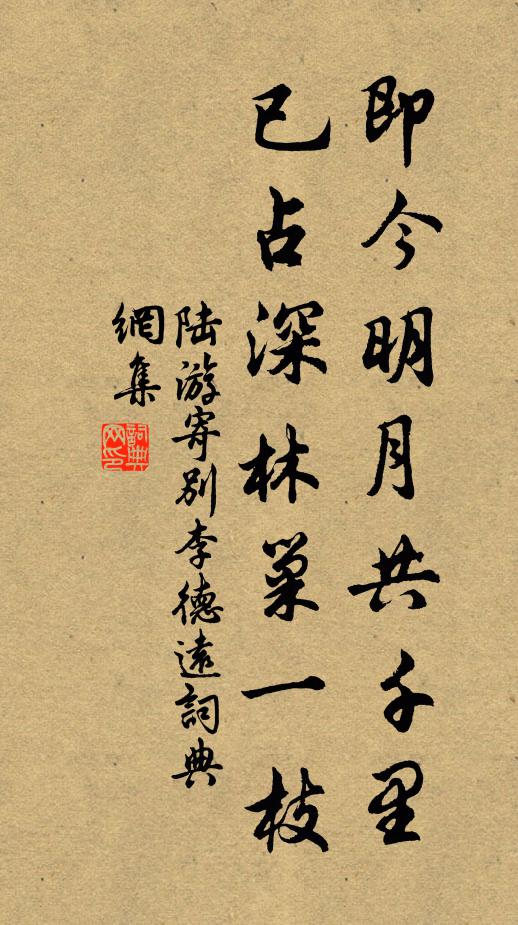 即今明月共千里
已占深林巢一枝
陆游寄别李德遠詞典
網集
詞典
网印